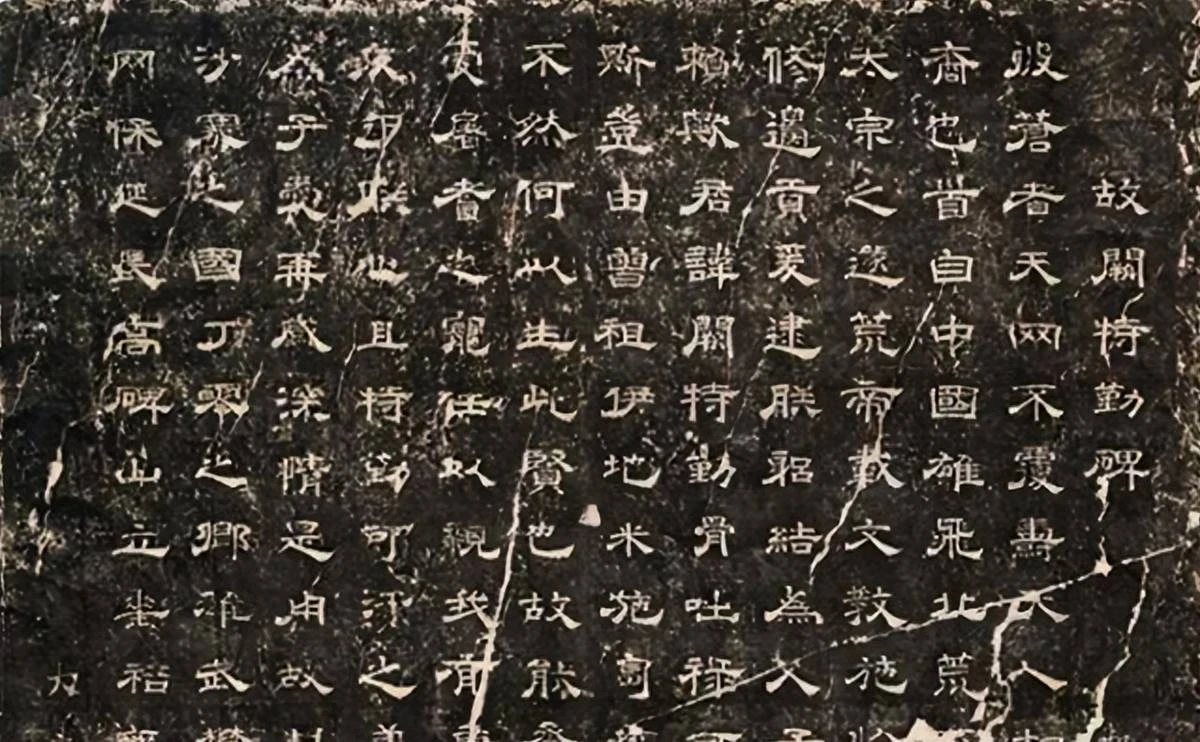 故闕特勤碑
彼蒼者天罔不覆燾天人
裔也首自中國雄飛北荒
太宗之遂荒帝載文教施
修邊貢爰逮朕躬結為父子
賴歟君諱闕特勤骨咄祿
斯豈由曾祖伊地米施匐
不然何以生此賢也故能
受屠耆之寵任以親我有
疚于朕心且特勤可汗之
為子愛再感深情是用故
沙塞之國丁零之鄉雄武
罔保延長高碑山立垂裕